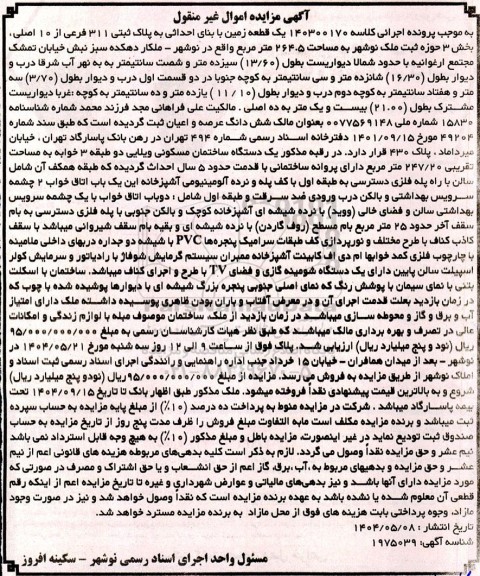 آگهی مزایده اموال غیر منقول
به موجب پرونده اجرائی کلاسه ۱۴۰۳۰۰۱۷۰ یک قطعه زمین با بنای احداثی به پلاک ثبتی ۳۱۱ فرعی از ۱۰ اصلی ،
بخش ۳ حوزه ثبت ملک نوشهر به مساحت ۲۶۴.۵ متر مربع واقع در نوشهر - ملکار دهکده سبز نبش خیابان تمشک
مجتمع ارغوانیه با حدود شمالا دیواریست بطول (۱۳/۶۰) سیزده متر و شصت سانتیمتر به به نهر آب شرقا درب و
دیوار بطول (۱۶/۳۰) شانزده متر و سی سانتیمتر به کوچه جنوبا در دو قسمت اول درب و دیوار بطول (۳/۷۰) سه
متر و هفتاد سانتیمتر به کوچه دوم درب و دیوار بطول (۱۱/۱۰) یازده متر و ده سانتیمتر به کوچه :غربا دیواریست
مشترک بطول (۲۱.۰۰) بیست و یک متر به ده اصلی . مالکیت علی فراهانی مجد فرزند محمد شماره شناسنامه
۱۵۸۳۰ شماره ملی ۰۰۷۷۵۶۹۱۴۸ بعنوان مالک شش دانگ عرصه و اعیان ثبت گردیده است که طبق سند شماره
۴۹۲۰۴ مورخ ۱۴۰۱/۰۹/۱۵ دفترخانه اسناد رسمی شماره ۴۹۴ تهران در رهن بانک پاسارگاد تهران ، خیابان
میرداماد . پلاک ۴۳۰ قرار دارد. در رقبه مذکور یک دستگاه ساختمان مسکونی ویلایی دو طبقه ۳ خوابه به مساحت
تقریبی ۲۴۷/۲۰ متر مربع دارای پروانه ساختمانی با قدمت حدود ۵ سال احداث گردیده که طبقه همکف آن شامل
سالن با راه پله فلزی دسترسی به طبقه اول با کف پله و نرده آلومینیومی آشپزخانه این یک باب اتاق خواب ۲ چشمه
سرویس بهداشتی و بالکن درب ورودی میباشد و طبقه اول شامل : دوباب اتاق خواب با یک چشمه سرویس
بهداشتی سالن و فضای خالی (ووید) با نرده شیشه ای آشپزخانه کوچک و بالکن جنوبی با پله فلزی دسترسی به بام
سقف آخر حدود ۲۵ متر مربع بام مسطح (روف گاردن) با نرده شیشه ای و بقیه بام سقف شیروانی میباشد با سقف
کاذب کناف با طرح مختلف و نورپردازی کف طبقات سرامیک پنجره‌ها PVC با شیشه دو جداره دربهای داخلی ملامینه
با چارچوب فلزی کمد خوابها ام دی اف کابینت آشپزخانه ممبران سیستم گرمایش شوفاژ با رادیاتور و سرمایش کولر
اسپیلت سالن پایین دارای یک دستگاه شومینه گازی و فضای TV با طرح و اجرای کناف میباشد. ساختمان با اسکلت
بتنی با نمای سیمان با پوشش رنگ که نمای اصلی جنوبی پنجره بزرگ شیشه ای با دیوارها پوشیده شده با چوب که
در زمان بازدید بعلت قدمت اجرای آن و در معرض آفتاب و باران بودن ظاهری پوسیده داشته ملک دارای امتیاز
آب و برق و گاز و محوطه سازی میباشد در زمان بازدید از ملک، ساختمان موصوف مبله با لوازم زندگی و امکانات
عالی در تصرف و بهره برداری مالک میباشد که طبق نظر هیات کارشناسان رسمی به مبلغ ۹۵/۰۰۰/۰۰۰/۰۰۰
ریال (نود و پنج میلیارد ریال) ارزیابی شد. پلاک فوق از ساعت ۹ الی ۱۲ روز سه شنبه مورخ ۱۴۰۴/۰۵/۲۱ در
نوشهر - بعد از میدان همافران - خیابان ۱۵ خرداد جنب اداره راهنمایی و رانندگی اجرای اسناد رسمی ثبت اسناد و
املاک نوشهر از طریق مزایده به فروش می رسد. مزایده از مبلغ ۹۵/۰۰۰/۰۰۰/۰۰۰ریال (نودو پنج میلیارد ریال)
شروع و به بالاترین قیمت پیشنهادی نقداً فروخته میشود. ملک مذکور طبق اظهار بانک تا تاریخ ۱۴۰۴/۰۹/۱۵ تحت
بیمه پاسارگاد میباشد . شرکت در مزایده منوط به پرداخت ده درصد (۱۰٪) از مبلغ پایه مزایده به حساب سپرده
ثبت میباشد و برنده مزایده مکلف است مابه التفاوت مبلغ فروش را ظرف مدت پنج روز از تاریخ مزایده به حساب
صندوق ثبت تودیع نماید در غیر اینصورت، مزایده باطل و مبلغ مذکور (۱۰٪) به هیچ وجه قابل استرداد نمی باشد
نیم عشر و حق مزایده نقداً وصول می گردد. لازم به ذکر است کلیه بدهی‌های مربوطه هزینه های قانونی اعم از نیم
عشر و حق مزایده و بدهیهای مربوط به ،آب ،برق، گاز اعم از حق انشعاب و یا حق اشتراک و مصرف در صورتی که
مورد مزایده دارای آنها باشد و نیز بدهی‌های مالیاتی و عوارض شهرداری و غیره تا تاریخ مزایده اعم از اینکه رقم
قطعی آن معلوم شده یا نشده باشد به عهده برنده مزایده است که نقداً وصول خواهد شد و نیز در صورت وجود
مازاد، وجوه پرداختی بابت هزینه های فوق از محل مازاد به برنده مزایده مسترد خواهد شد.
تاریخ انتشار : ۱۴۰۴/۰۵/۰۸
شناسه آگهی: ۱۹۷۵۰۳۹
مسئول واحد اجرای اسناد رسمی نوشهر - سکینه افروز